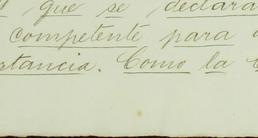 que se declara
competente para
stancia. Como la